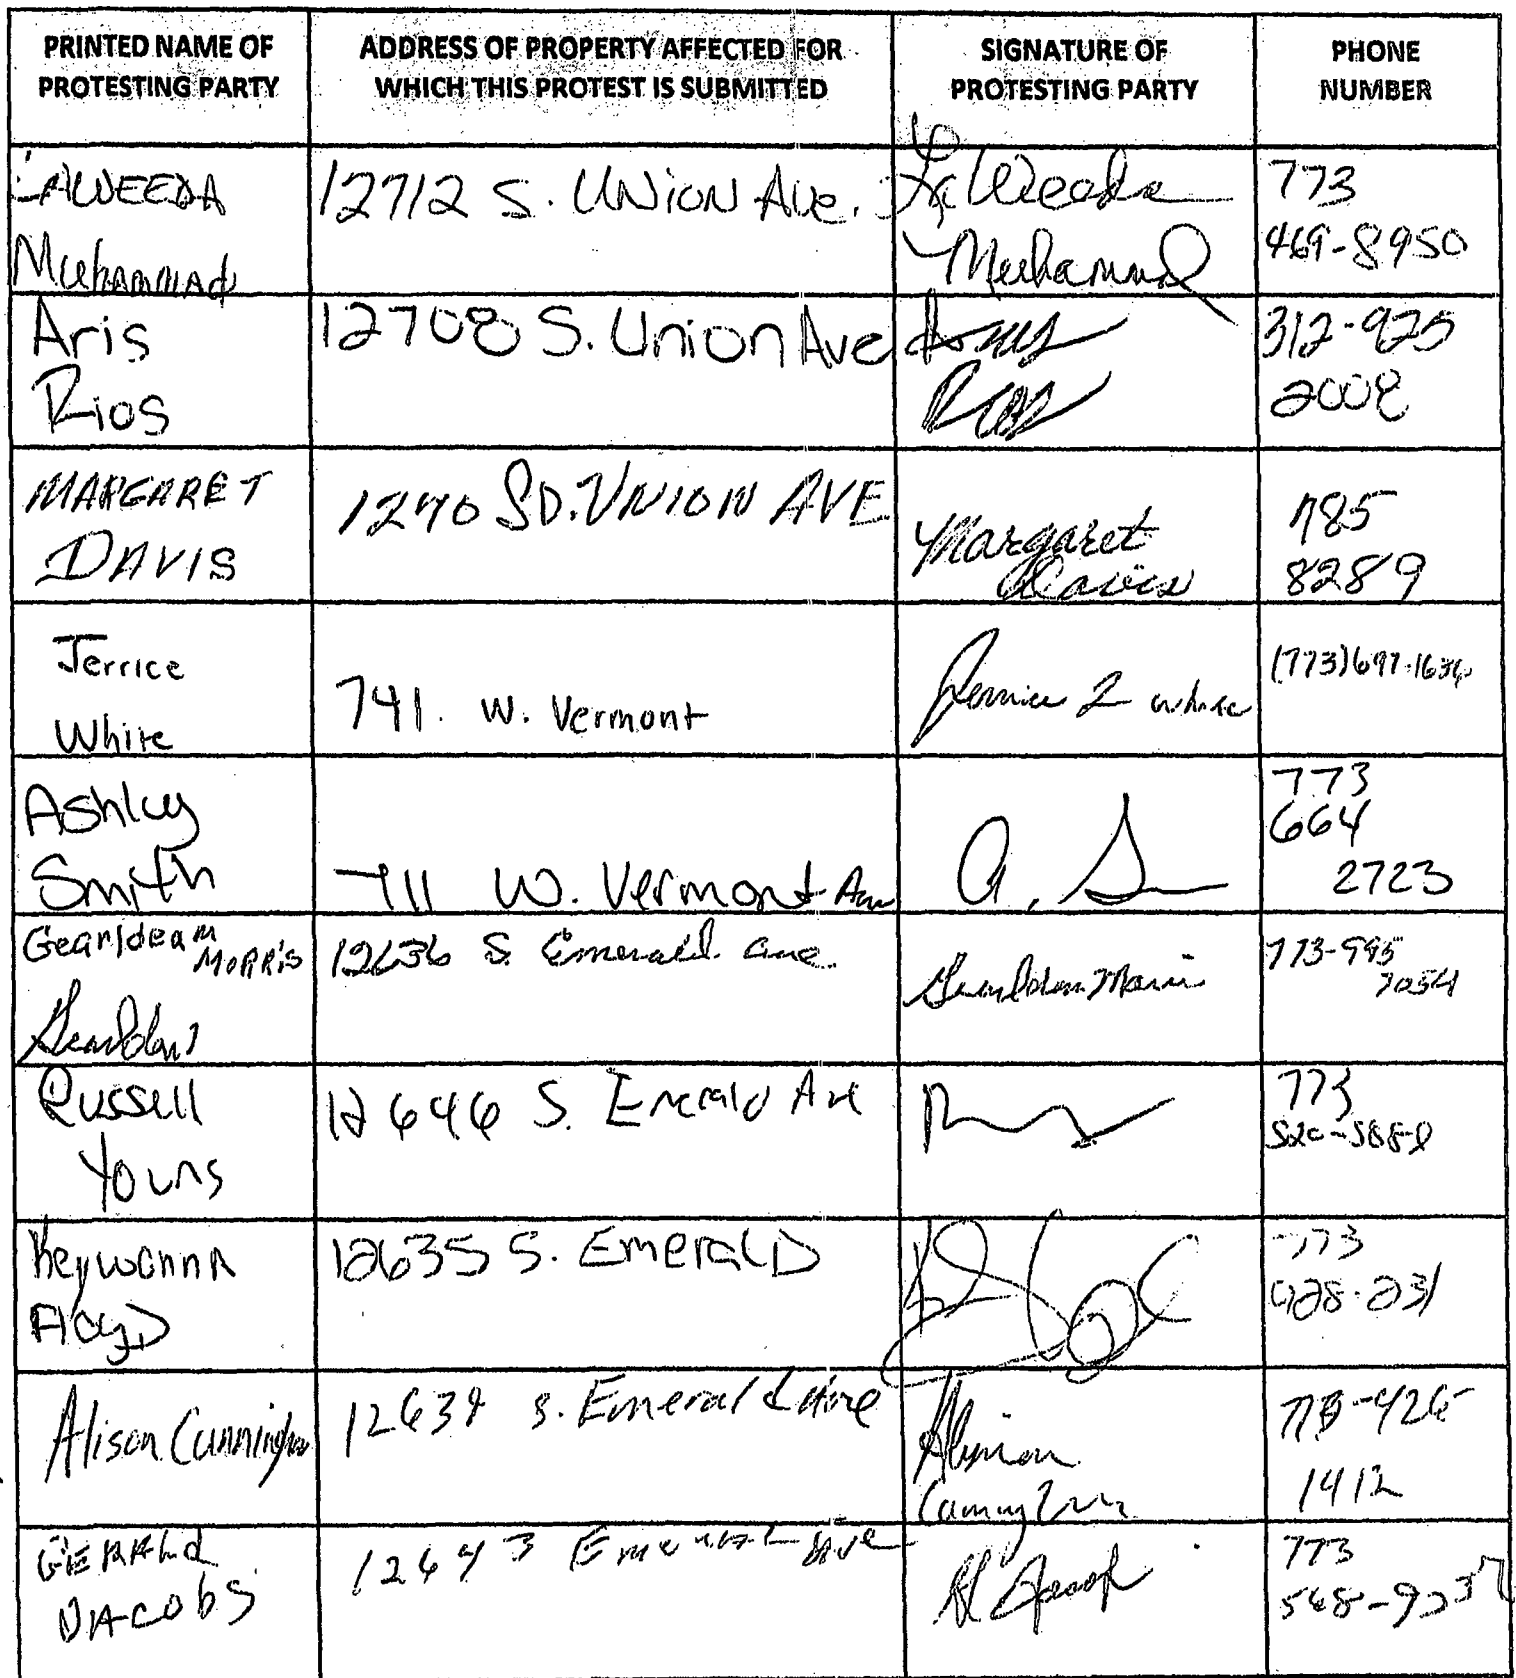 PRINTED NAME OF
PROTESTING PARTY
ADDRESS OF PROPERTY AFFECTED FOR
WHICH THIS PROTEST IS SUBMITTED
SIGNATURE OF
PROTESTING PARTY
PHONE
NUMBER
LAWEEDA
Muhammad
12712 S. UNION Ave.
LaWeeda
Muhammad
773
469-8950
Aris
Rios
12708 S. Union Ave
Aris
Rios
312-925
2008
MARGARET
DAVIS
1270 SO. UNION AVE
Margaret
Davis
785
8289
Jerrice
White
741. W. Vermont
White
(773)697-1636
Ashley
Smith
711 W. Vermont Ave
A. S
773
664
2723
Gearldean
MORRIS
12636 S. Emerald. ave.
Morris
773-995
7054
Russell
Youns
12646 S. Emerald Ave
773
Keywanna
Floyd
12635 S. Emerald
773
928-231
Alison Cunningham
12639 S. Emerald Ave
773-426
1412
GERALd
JACObS
12643 Emerald Ave
773